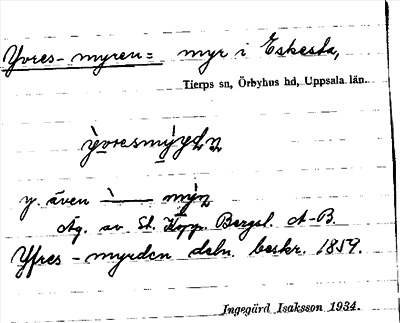 Yvres-myren = myr i Eskesta,
Tierps sn, Örbyhus hd, Uppsala län.
y. även
Äg. av St. Kopp. Bergsl. A-B.
Yfres-myrden deln. beskr. 1859.
Ingegärd Isaksson 1934.